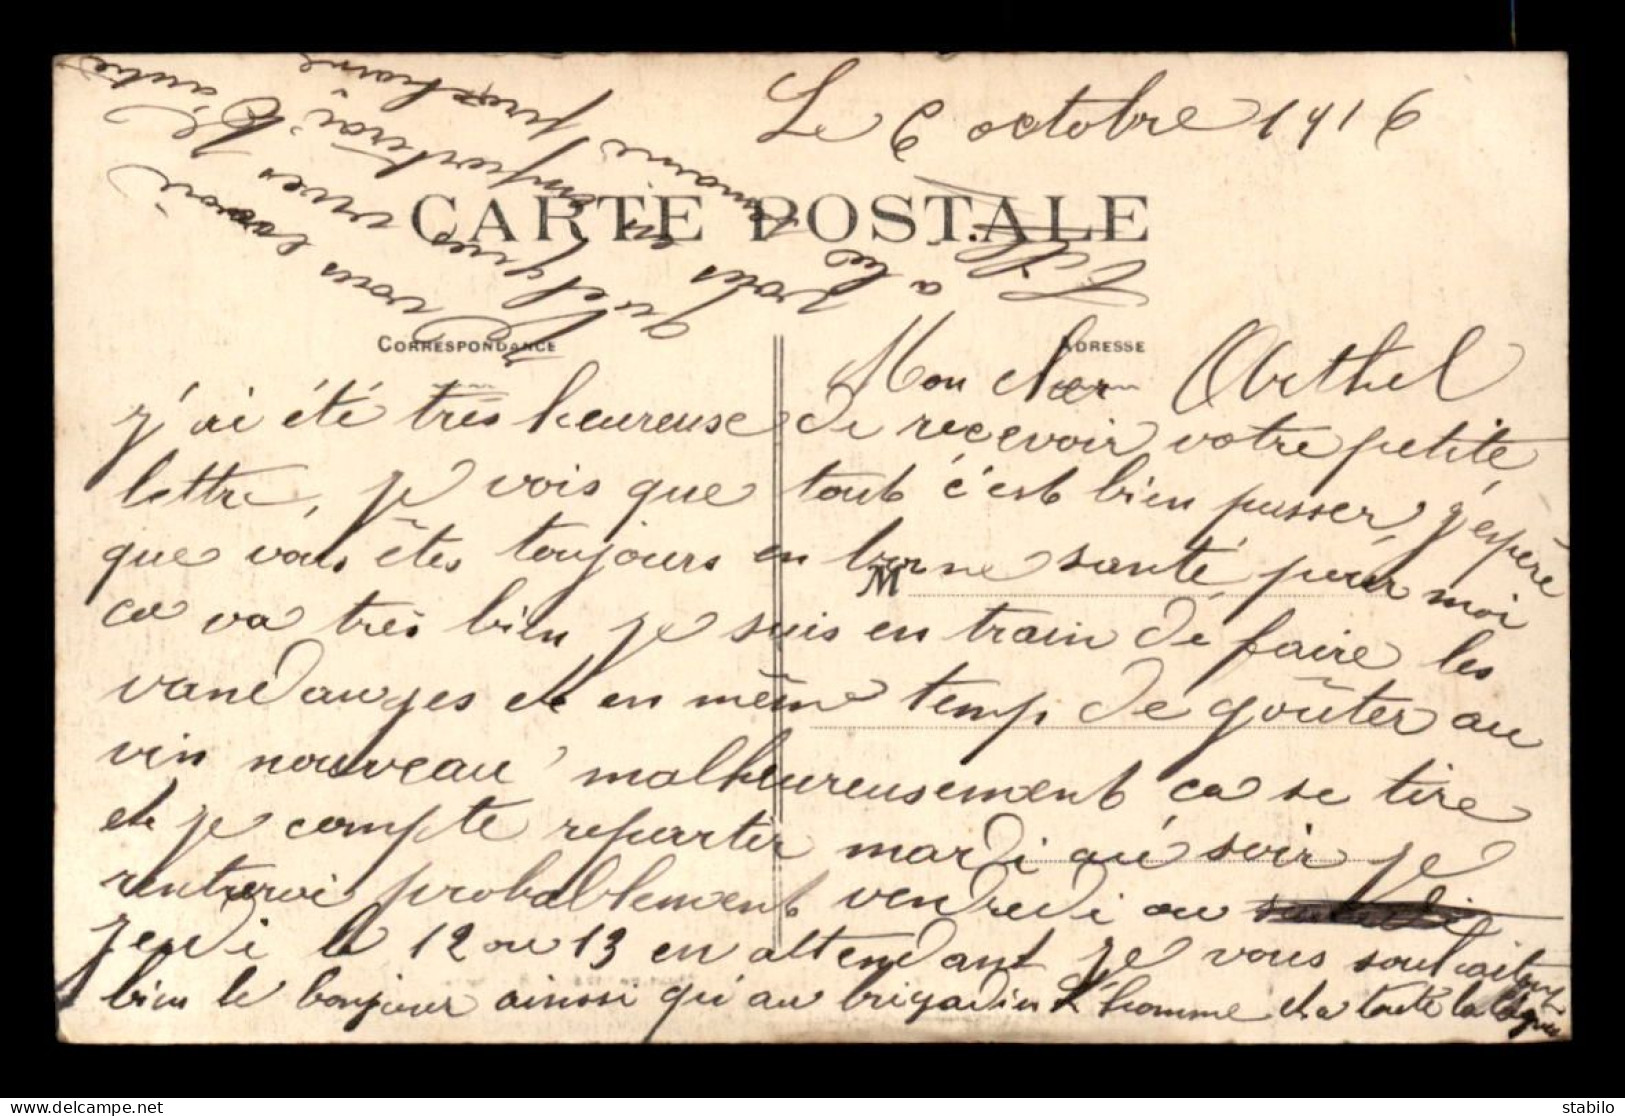 Le 6 octobre 1916
CARTE POSTALE
CORRESPONDANCE
ADRESSE
Mon cher
j'ai été très heureuse de recevoir votre petite
lettre, je vois que tout c'est bien passer, j'espère
que vous êtes toujours en bonne santé, pour moi
M
ca va très bien je suis en train de faire les
vandanges et en même temp de goûter au
vin nouveau malheureusement ca se tire
et je compte repartir mardi au soir je
rentreroi probablement vendredi ou
jeudi le 12 ou 13 en attendant je vous souhait
bien le bonjour ainssi qui au brigadier L'homme et a toute la
vous savoir
quelques unes
votes en emporterai
a la semaine prochaine
stabilo